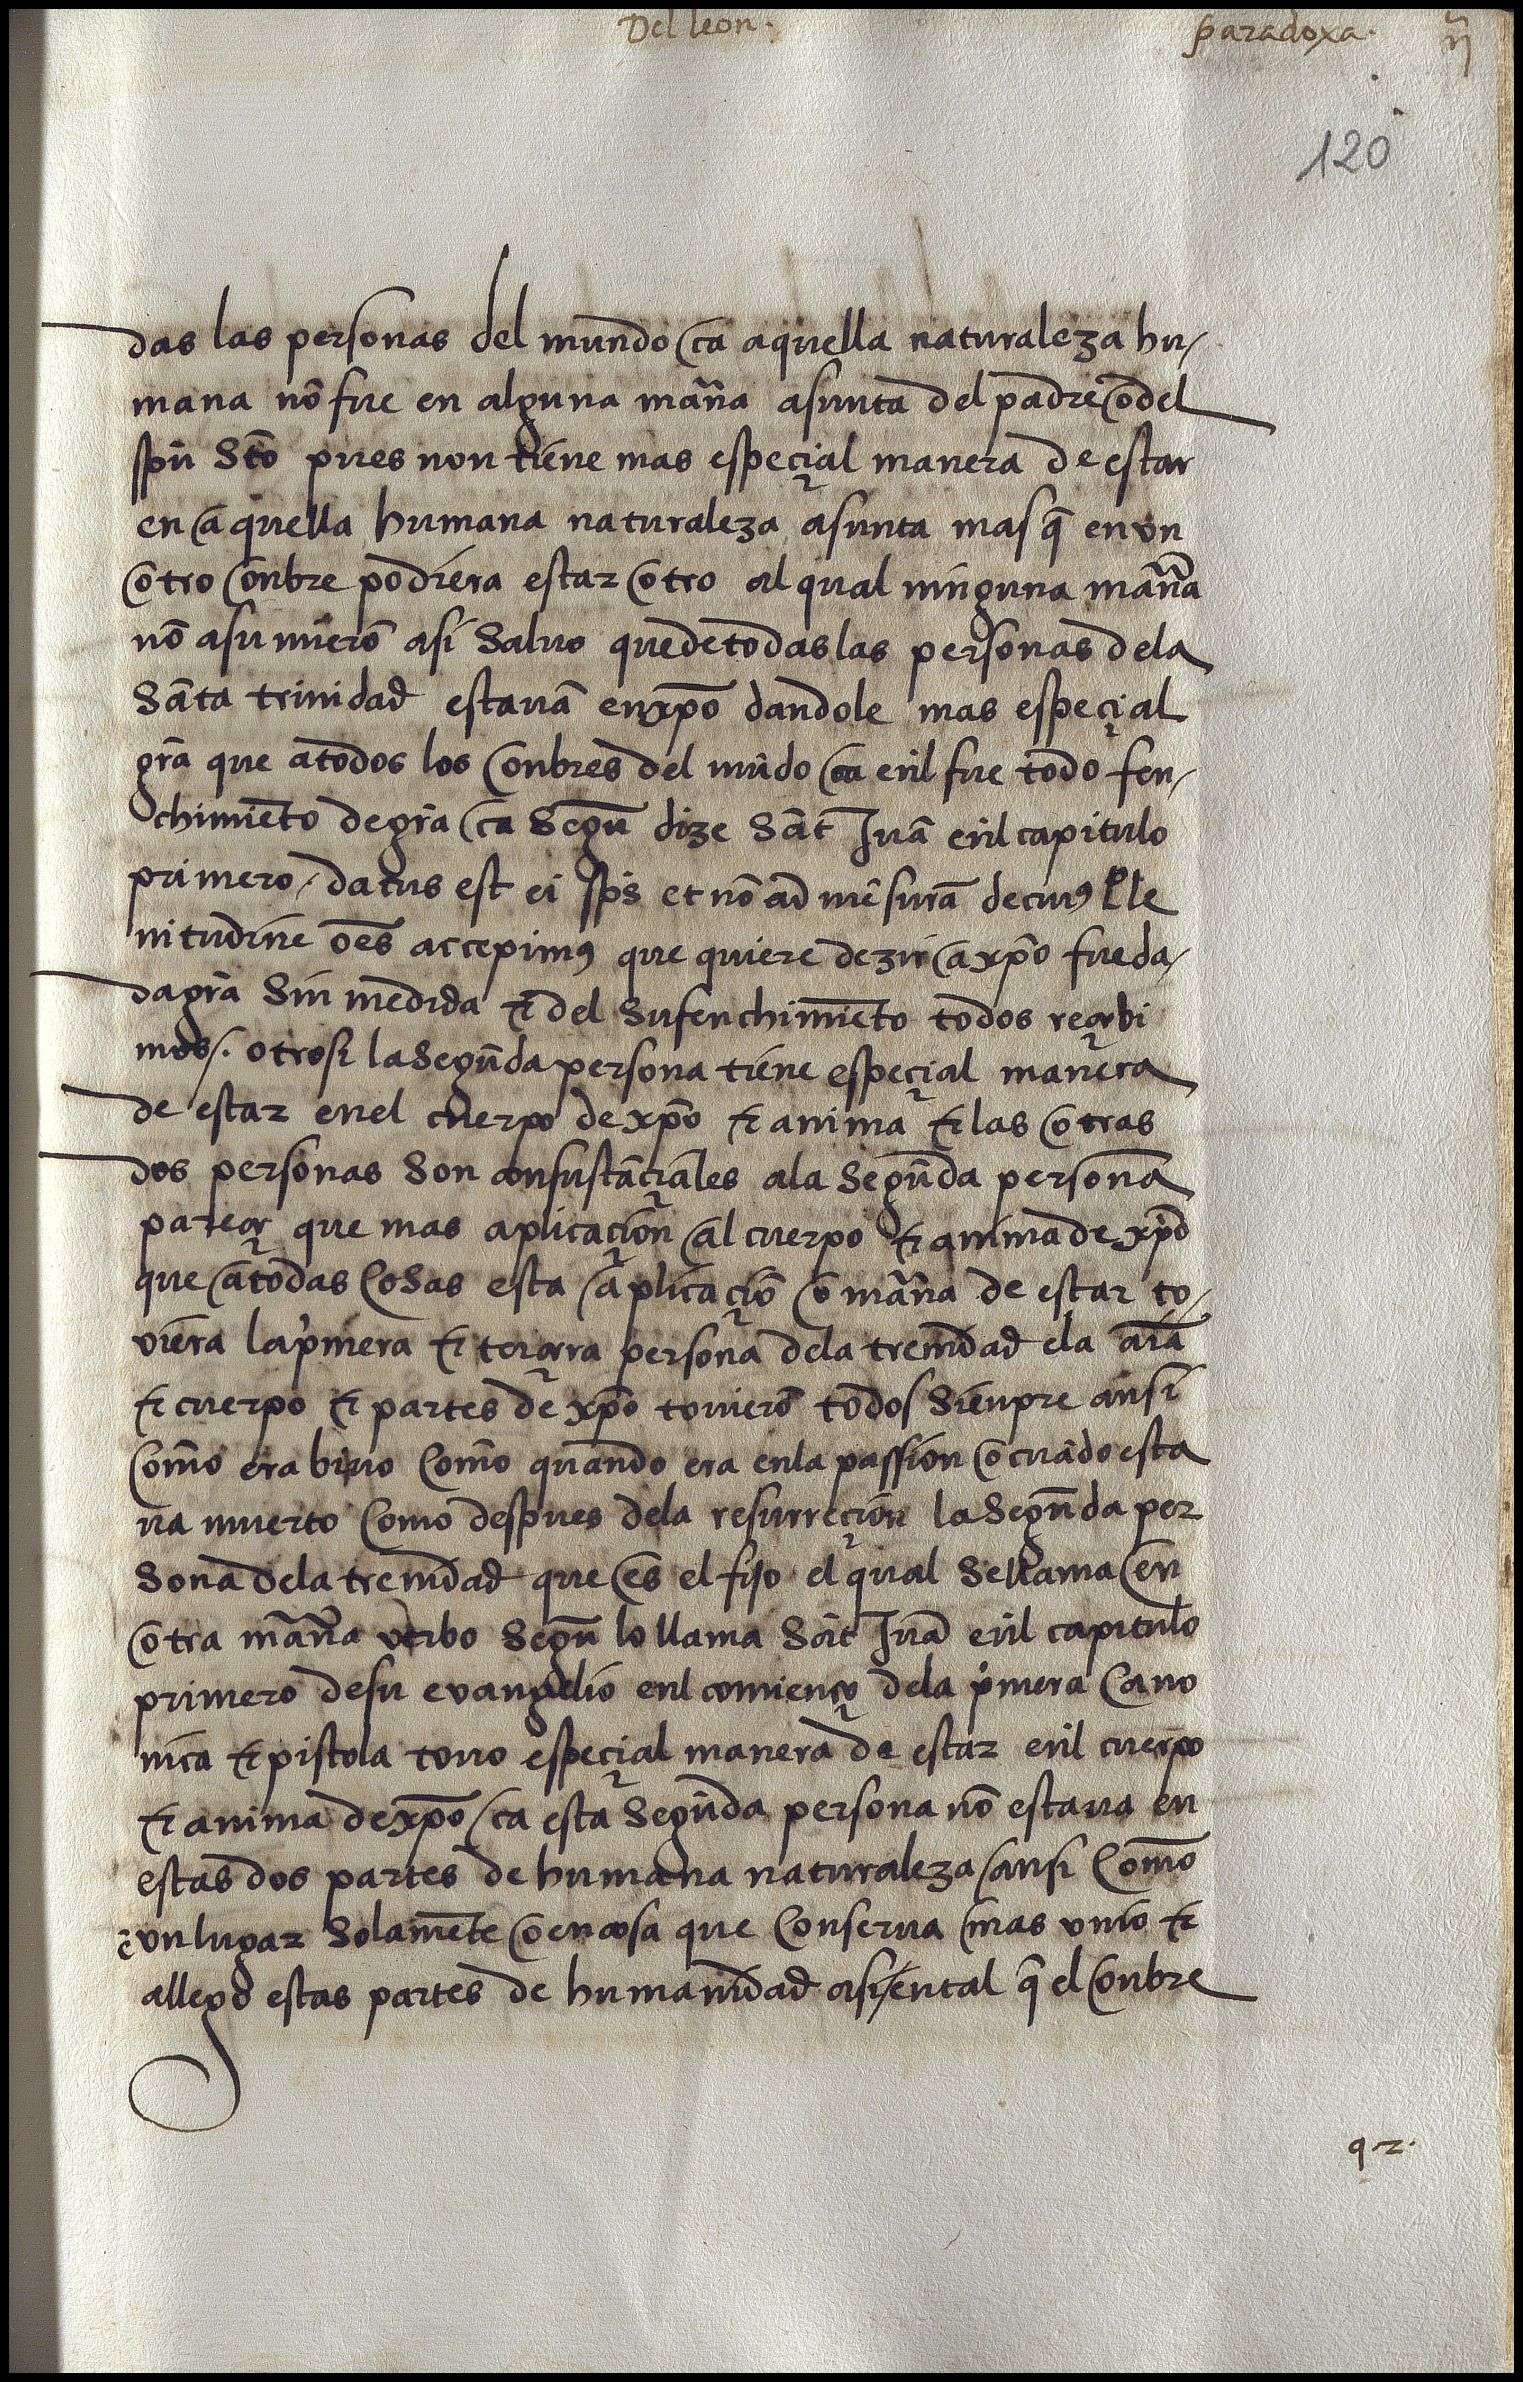 Del leon. paradoxa.
120
das las personas del mundo ca aquella naturaleza hu/
mana nõ fue en alguna mãna asunta del padre o del
spũ Stõ pues non tiene mas espeçial manera de estar
en aquella humana naturaleza asunta mas q̃ en un
otro onbre podiera estar otro al qual ninguna mãna
nõ asumierõ asi Saluo que de todas las personas dela
Sãta trinidad estauã en xp̃o dandole mas espeçial
grã que a todos los onbres del mũdo ca enl fue todo fen/
chimiẽto de grã ca Segũ dize Sãt Juã enl capitulo
primero / datus est ei sp̃s et nõ ad mẽsurã de cuiꝰ ple
nitudine oẽs accepimꝰ que quiere dezir a xp̃o fue da/
da grã Sin medida ⁊ del Su fenchimiẽto todos reçebi
mos /. otrosi la Segũda persona tiene espeçial manera
de estar enel cuerpo de xp̃o ⁊ anima ⁊ las otras
dos personas Son consustãçiales ala Segũda persona
pareçe que mas aplicaçion al cuerpo ⁊ anima de xp̃o
que a todas cosas esta aplicaçiõ o mãna de estar to/
uiera la pͥmera ⁊ terçera persona dela trenidad ela aĩa
⁊ cuerpo ⁊ partes de xp̃o touierõ todos Sienpre ansi
Como era biuo Como quando era enla passion o cuãdo esta
ua muerto Como despues dela resurreçion la Segũda per
Sona dela trenidad que es el fijo el qual Se llama en
otra mãna verbo Segũ lo llama Sãt Juã enl capitulo
primero de su evangelio enl comienço dela pͥmera Cano
nica ⁊ pistola touo espeçial manera de estar enl cuerpo
⁊ anima de xp̃o / ca esta Segũda persona nõ estaua en
estas dos partes de humana naturaleza / ansi Como
ẽ un lugar Solamẽte o en cosa que Conserua / mas unio ⁊
allego estas partes de humanidad asi / en tal q̃ el onbre
q. 2.